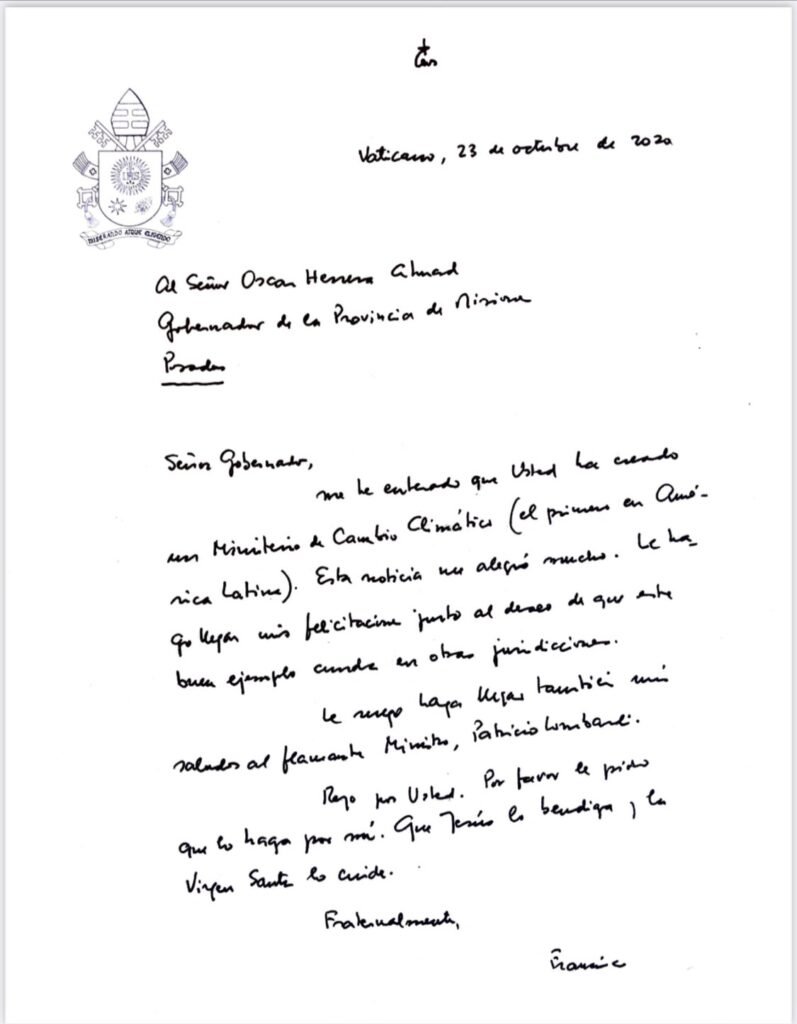 Vaticano, 23 de octubre de 2020
MISERANDO ATQUE ELIGENDO
IHS
Al Señor Oscar Herrera Ahuad
Gobernador de la Provincia de Misiones
Posadas
Señor Gobernador,
me he enterado que Usted ha creado
un Ministerio de Cambio Climático (el primero en Amé-
rica Latina). Esta noticia me alegró mucho. Le ha-
go llegar mis felicitaciones junto al deseo de que este
buen ejemplo cunda en otras jurisdicciones.
Le ruego haga llegar también mis
saludos al flamante Ministro, Patricio Lombardi.
Rezo por Usted. Por favor le pido
que lo haga por mí. Que Jesús lo bendiga y la
Virgen Santa lo cuide.
Fraternalmente,
Francisco